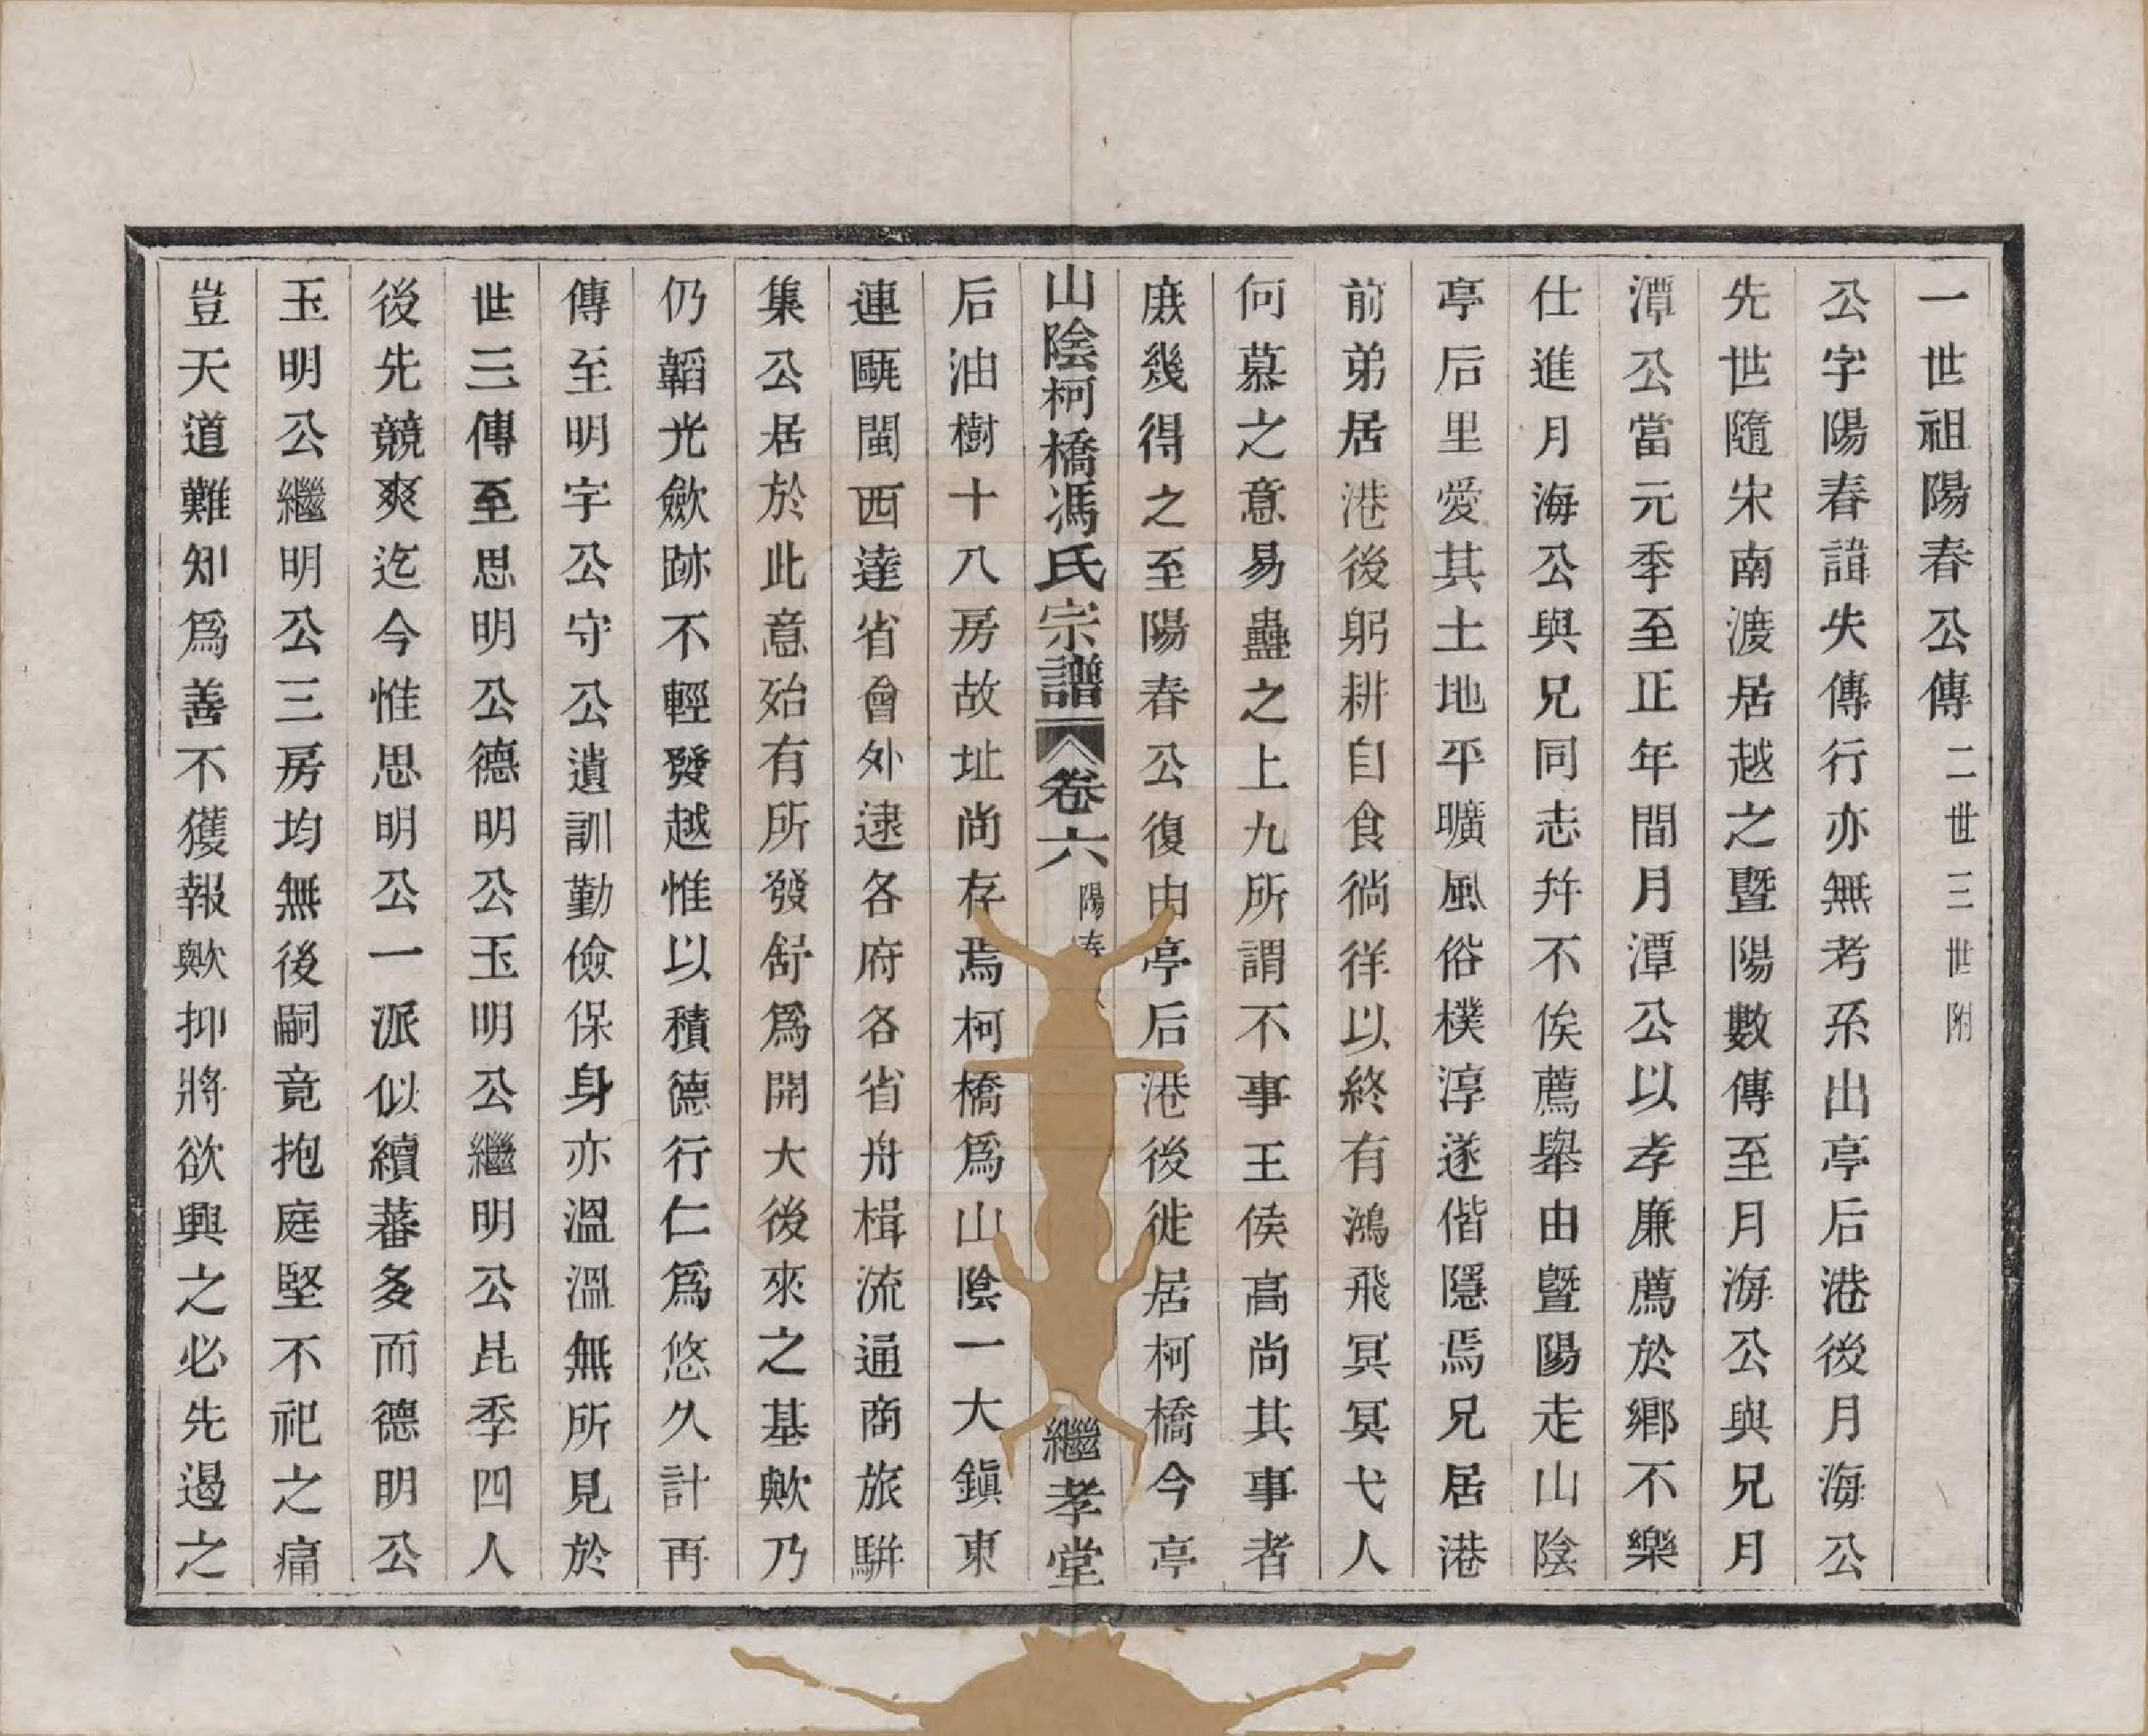 一世祖陽春公傳二世三世附
公字陽春諱失傳行亦無考系出亭后港後月海公
先世隨宋南渡居越之暨陽數傳至月海公與兄月
潭公當元季至正年間月潭公以孝廉薦於鄉不樂
仕進月海公與兄同志并不俟薦舉由暨陽走山陰
亭后里愛其土地平曠風俗樸淳遂偕隱焉兄居港
前弟居港後躬耕自食徜徉以終有鴻飛冥冥弋人
何慕之意易蠱之上九所謂不事王侯高尚其事者
庶幾得之至陽春公復由亭后港後徙居柯橋今亭
山陰柯橋馮氏宗譜 卷六 陽春 繼孝堂
后油樹十八房故址尚存焉柯橋爲山陰一大鎮東
連甌閩西達省會外逮各府各省舟楫流通商旅駢
集公居於此意殆有所發舒爲開大後來之基歟乃
仍韜光歛跡不輕發越惟以積德行仁爲悠久計再
傳至明宇公守公遺訓勤儉保身亦溫溫無所見於
世三傳至思明公德明公玉明公繼明公昆季四人
後先競爽迄今惟思明公一派似續蕃多而德明公
玉明公繼明公三房均無後嗣竟抱庭堅不祀之痛
豈天道難知爲善不獲報歟抑將欲興之必先遏之